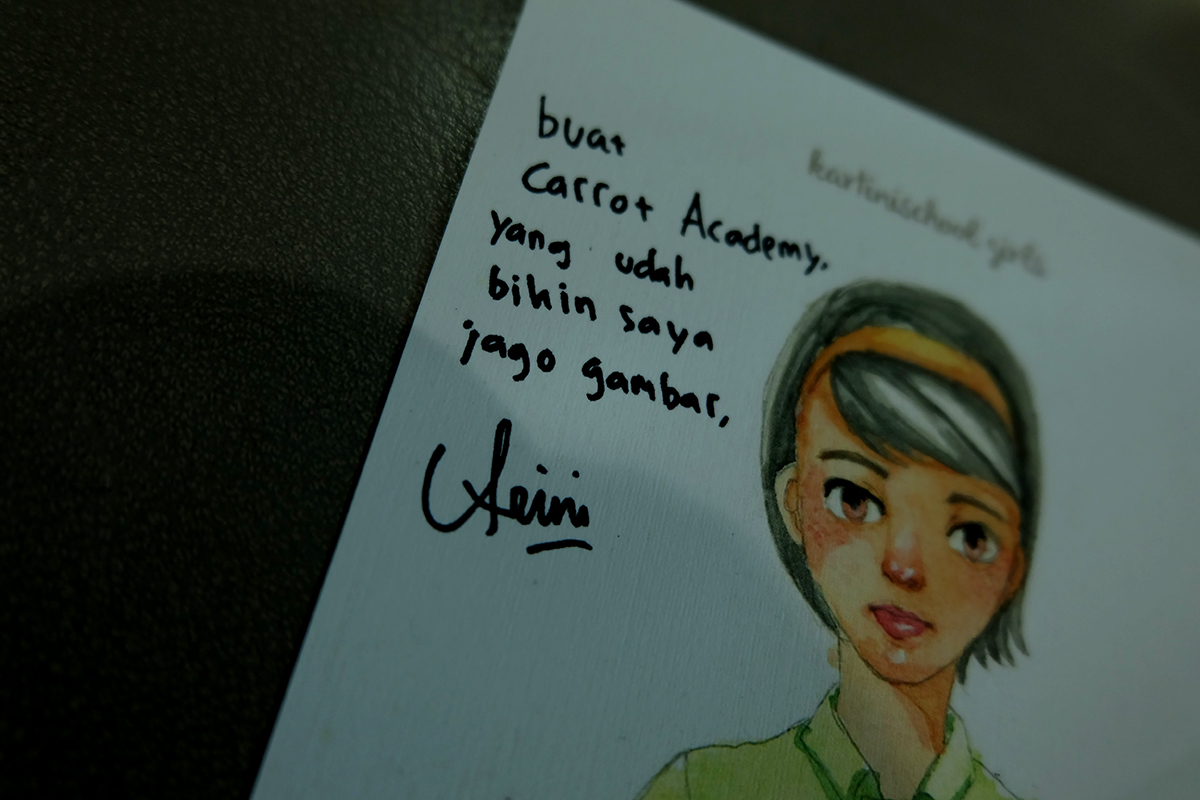 buat
Carrot Academy.
yang udah
bikin saya
jago gambar,
kartinischool girls